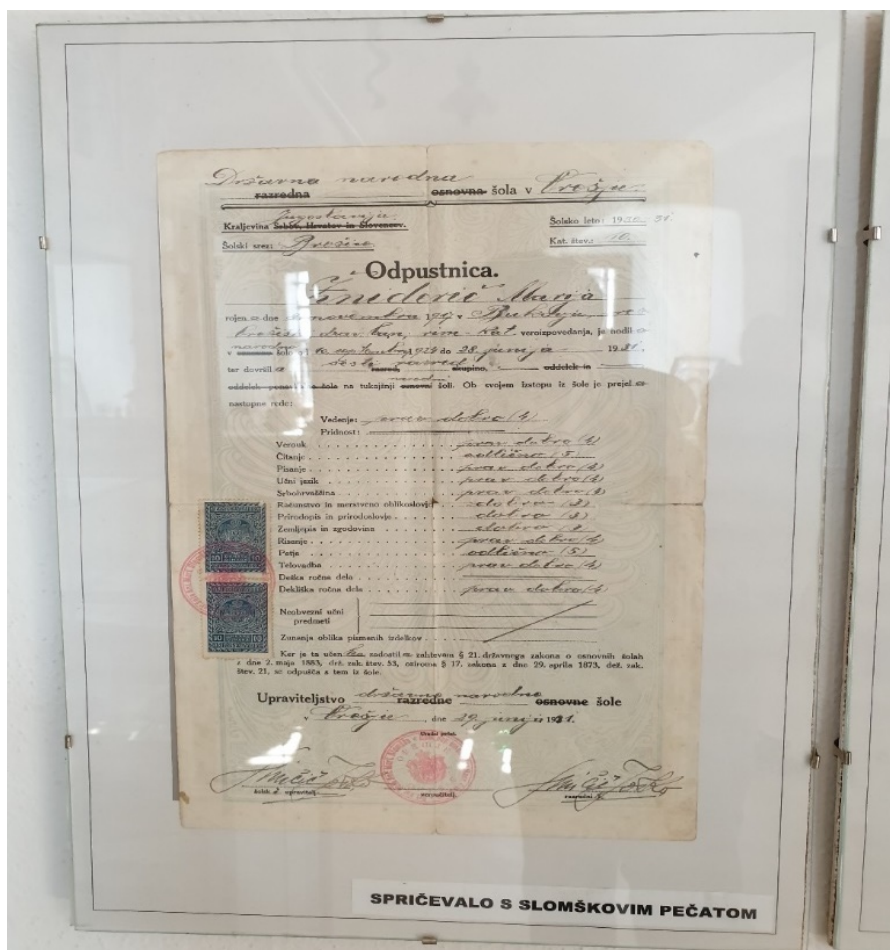 Državna narodna
razredna osnovna šola v
Kraljevina Jugoslavija Srbov, Hrvatov in Slovencev.
Šolsko leto: 1930 31.
Šolski srez: Brežice
Kat. štev.: 10.
Odpustnica.
Marija
rojen dne novembra v
rim. kat. veroizpovedanja, je hodil a
narodno
v šolo od 10. septembra 1924 do 28. junija 1931.
ter dovršil a šesti razred razred, skupino, oddelek in
narodni
oddelek šole na tukajšnji osnovni šoli. Ob svojem izstopu iz šole je prejel
nastopne rede:
Vedenje: prav dobro (4)
Pridnost:
Verouk prav dobro (4)
Čitanje odlično (5)
Pisanje prav dobro (4)
Učni jezik prav dobro (4)
Srbohrvaščina prav dobro (4)
Računstvo in merstveno oblikoslovje dobro (3)
Prirodopis in prirodoslovje dobro (3)
Zemljepis in zgodovina dobro (3)
Risanje prav dobro (4)
Petje odlično (5)
Telovadba prav dobro (4)
Deška ročna dela
Dekliška ročna dela prav dobro (4)
Neobvezni učni
predmeti
Zunanja oblika pismenih izdelkov
Ker je ta učenka zadostil a zahtevam § 21. državnega zakona o osnovnih šolah
z dne 2. maja 1883, drž. zak. štev. 53, oziroma § 17. zakona z dne 29. aprila 1873, dež. zak.
štev. 21, se odpušča s tem iz šole.
Upraviteljstvo državne narodne razredne osnovne šole
v dne 29. junija 1931.
Uradni pečat.
šolski upravitelj.
veroučitelj.
razrednik
SPRIČEVALO S SLOMŠKOVIM PEČATOM